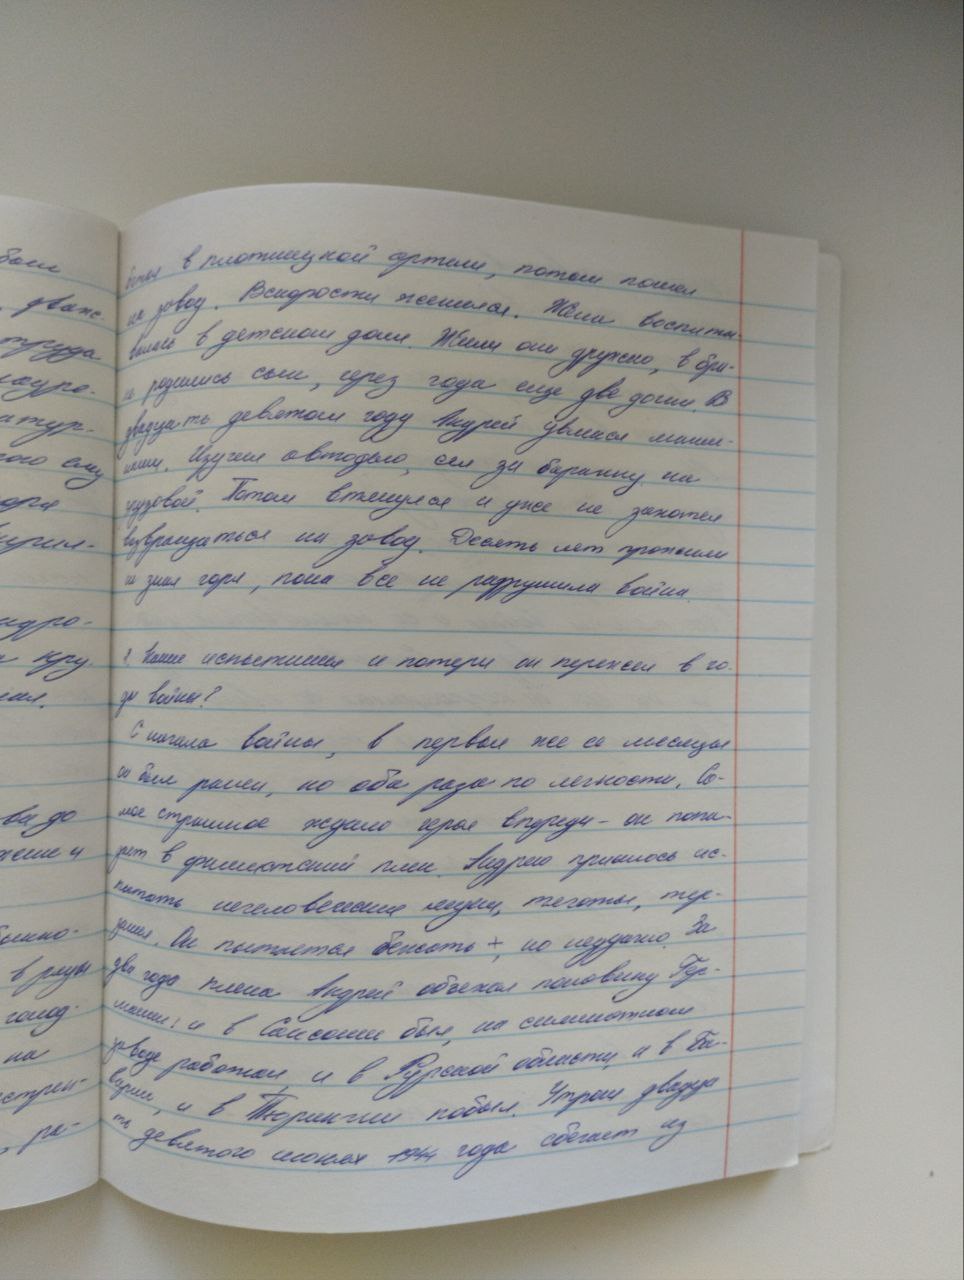 ботал в плотницкой артели, потом пошел
на завод. Вскорости женился. Жена воспиты
валась в детском доме. Жили они дружно, в бра-
ке родились сын, через года еще две дочки. В
двадцать девятом году Андрей увлекся маши-
нами. Изучил автодело, сел за баранку на
грузовой. Потом втянулся и уже не захотел
возвращаться на завод. Десять лет прожили
не зная горя, пока все не разрушила война.
Какие испытания и потери он пережил в го-
ды войны?
С начала войны, в первые же се месяцы
он был ранен, но оба раза по легкости. Са-
мое страшное ждало героя впереди - он попа-
дает в фашистский плен. Андрею пришлось ис-
пытать нечеловеческие муки, тяготы, тер-
зания. Он пытается бежать +, но неудачно. За
два года плена Андрей объехал половину Гер-
мании: и в Саксонии был, на силикатном
заводе работал, и в Рурской области, и в Ба-
варии, и в Тюрингии побыл. Утром двадца
ть девятого июня 1944 года сбегает из